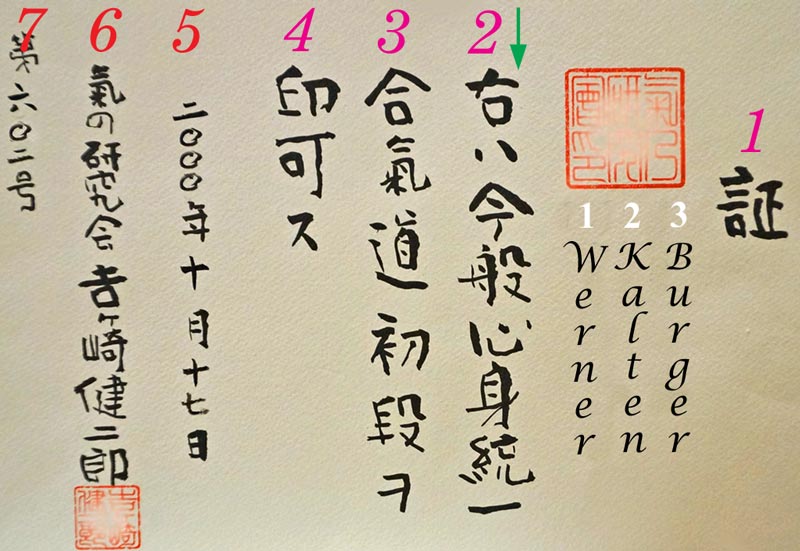 1
証
1 Werner
2 Kalten
3 Burger
2
右ハ今般心身統一
3
合氣道初段ヲ
4
印可ス
5
二〇〇〇年十月十七日
6
氣の研究会 吉ヶ崎健二郎
7
第六〇二号